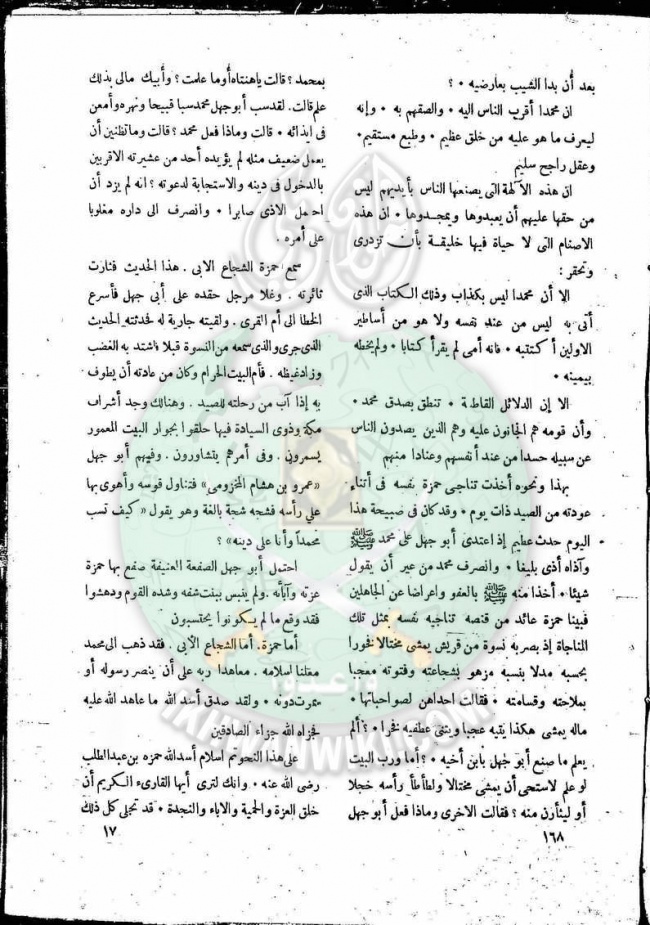 بعد أن بدا الشيب بعارضيه • ؟
ان محمدا أقرب الناس اليه • والصقهم به • وإنه
ليعرف ما هو عليه من خلق عظيم • وطبع مستقيم •
وعقل راجح سليم
ان هذه الآلهة التى يصنعها الناس بأيديهم ليس
من حقها عليهم أن يعبدوها ويمجدوها • ان هذه
الاصنام التى لا حياة فيها خليقة بأن تزدرى
وتحقر :
الا أن محمدا ليس بكذاب وذلك الكتاب الذى
أتى به ليس من عند نفسه ولا هو من أساطير
الاولين أ كتتبه • فانه أمى لم يقرأ كتابا • ولم يخطه
بيمينه •
الا إن الدلائل القاطعة • تنطق بصدق محمد •
وأن قومه هم الجانون عليه وهم الذين يصدون الناس
عن سبيله حسدا من عند أنفسهم وعنادا منهم
بهذا ونحوه أخذت تناجى حمزة نفسه فى أثناء
عودته من الصيد ذات يوم • وقد كان فى صبيحة هذا
اليوم حدث عظيم إذ اعتدى أبو جهل على محمد ﷺ
وآذاه أذى بليغا • وانصرف محمد من عير أن يقول
شيئا • أخذا منه ﷺ بالعفو واعراضا عن الجاهلين
فبينا حمزة عائد من قنصه تناجيه نفسه بمثل تلك
المناجاة إذ بصر به نسوة من قريش يمشى مختالا فخورا
بحسبه مدلا بنسبه مزهو بشجاعته وفتوته معجبا
بملاحته وقسامته • فقالت احداهن لصواحباتها •
ماله يمشى هكذا يتيه عجبا ويثنى عطفيه فخرا • ؟ ألم
يعلم ما صنع أبو جهل بابن أخيه • ؟ أما ورب البيت
لو علم لاستحى أن يمشى مختالا ولطأطأ رأسه خجلا
أو ليثأرن منه ؟ فقالت الاخرى وماذا فعل أبو جهل
١٦٨
بمحمد ؟ قالت ياهنتاه أوما علمت ؟ وأبيك مالى بذلك
علم قالت . لقد سب أبو جهل محمد سبا قبيحا ونهره وأمعن
فى ايذائه • قالت وماذا فعل محمد ؟ قالت وما تظنين أن
يعمل ضعيف مثله لم يؤيده أحد من عشيرته الاقربين
بالدخول فى دينه والاستجابة لدعوته ؟ انه لم يزد أن
احتمل الاذى صابرا • وانصرف الى داره مغلوبا
على أمره .
سمع حمزة الشجاع الابى . هذا الحديث فثارت
ثائرته . وغلا مرجل حقده على أبى جهل فأسرع
الخطا الى أم القرى . ولقيته جارية له فحدثته الحديث
الذى جرى والذى سمعه من النسوة قبلا فاشتد به الغضب
وزاد غيظه . فأم البيت الحرام وكان من عادته أن يطوف
به إذا آب من رحلته للصيد . وهنالك وجد أشراف
مكة وذوى السيادة فيها حلقوا بجوار البيت المعمور
يسمرون . وفى أمرهم يتشاورون . وفيهم أبو جهل
«عمرو بن هشام المخزومى» فتناول قوسه وأهوى بها
علي رأسه فشجه شجة بالغة وهو يقول « كيف تسب
محمداً وأنا على دينه » ؟
احتمل أبو جهل الصفعة العنيفة صفع بها حمزة
عزته وآباءه . ولم ينبس ببنت شفه وشده القوم ودهشوا
فقد وقع ما لم يكونوا يحتسبون
أما حمزة . أما الشجاع الأبى . فقد ذهب الى محمد
معلنا اسلامه . معاهدا ربه على أن ينصر رسوله أو
يموت دونه • ولقد صدق أسد الله ما عاهد الله عليه
فجزاه الله جزاء الصادقين
على هذا النحو تم اسلام أسد الله حمزه بن عبد المطلب
رضى الله عنه • وانك لترى أيها القارىء الكريم أن
خلق العزة والحمية والاباء والنجدة • قد تجلى كل ذلك
١٧
IKHWANWIKI.COM
وأعدوا